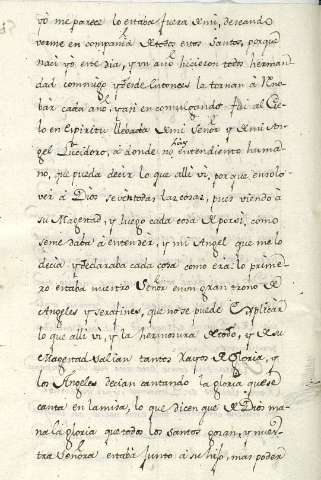 yo me parece lo estaba fuera de mi, deseando
verme en compañia de todos estos Santos, porque
naci yo este dia, y un año hicieron todos herman-
dad commigo y desde entonces la tornan à Reno-
bar cada año, y asi en comulgando fui al Cie-
lo en Espiritu llebada de mi Señor y de mi An-
gel Lucidoro, à donde no hay entendimiento huma-
no, que pueda decir lo que alli vi, porque en solo
ver à Dios se ven todas las cosas, pues viendo à
su Magestad, y luego cada cosa de por si, como
se me daba à entender, y mi Angel que me lo
decia y declaraba cada cosa como era: lo prime-
ro estaba nuestro Señor en un gran trono de
Angeles y serafines, que no se puede Explicar
lo que alli vi, y la hermosura de todo, y de su
Magestad salian tantos Rayos de gloria, y
los Angeles decian cantando la gloria que se
canta en la misa, lo que dicen que de Dios ma-
na la gloria que todos los Santos gozan, y nues-
tra Señora estaba junto à su hijo, mas poder